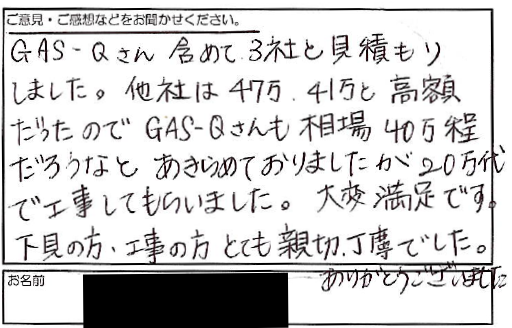 ご意見・ご感想などをお聞かせください。
GAS-Qさん 含めて 3社と見積もり
しました。他社は 47万、41万と 高額
だったので GAS-Qさんも 相場 40万程
だろうなと あきらめておりましたが 20万代
で工事してもらいました。大変 満足です。
下見の方、工事の方 とても 親切、丁寧でした。
ありがとうございました
お名前